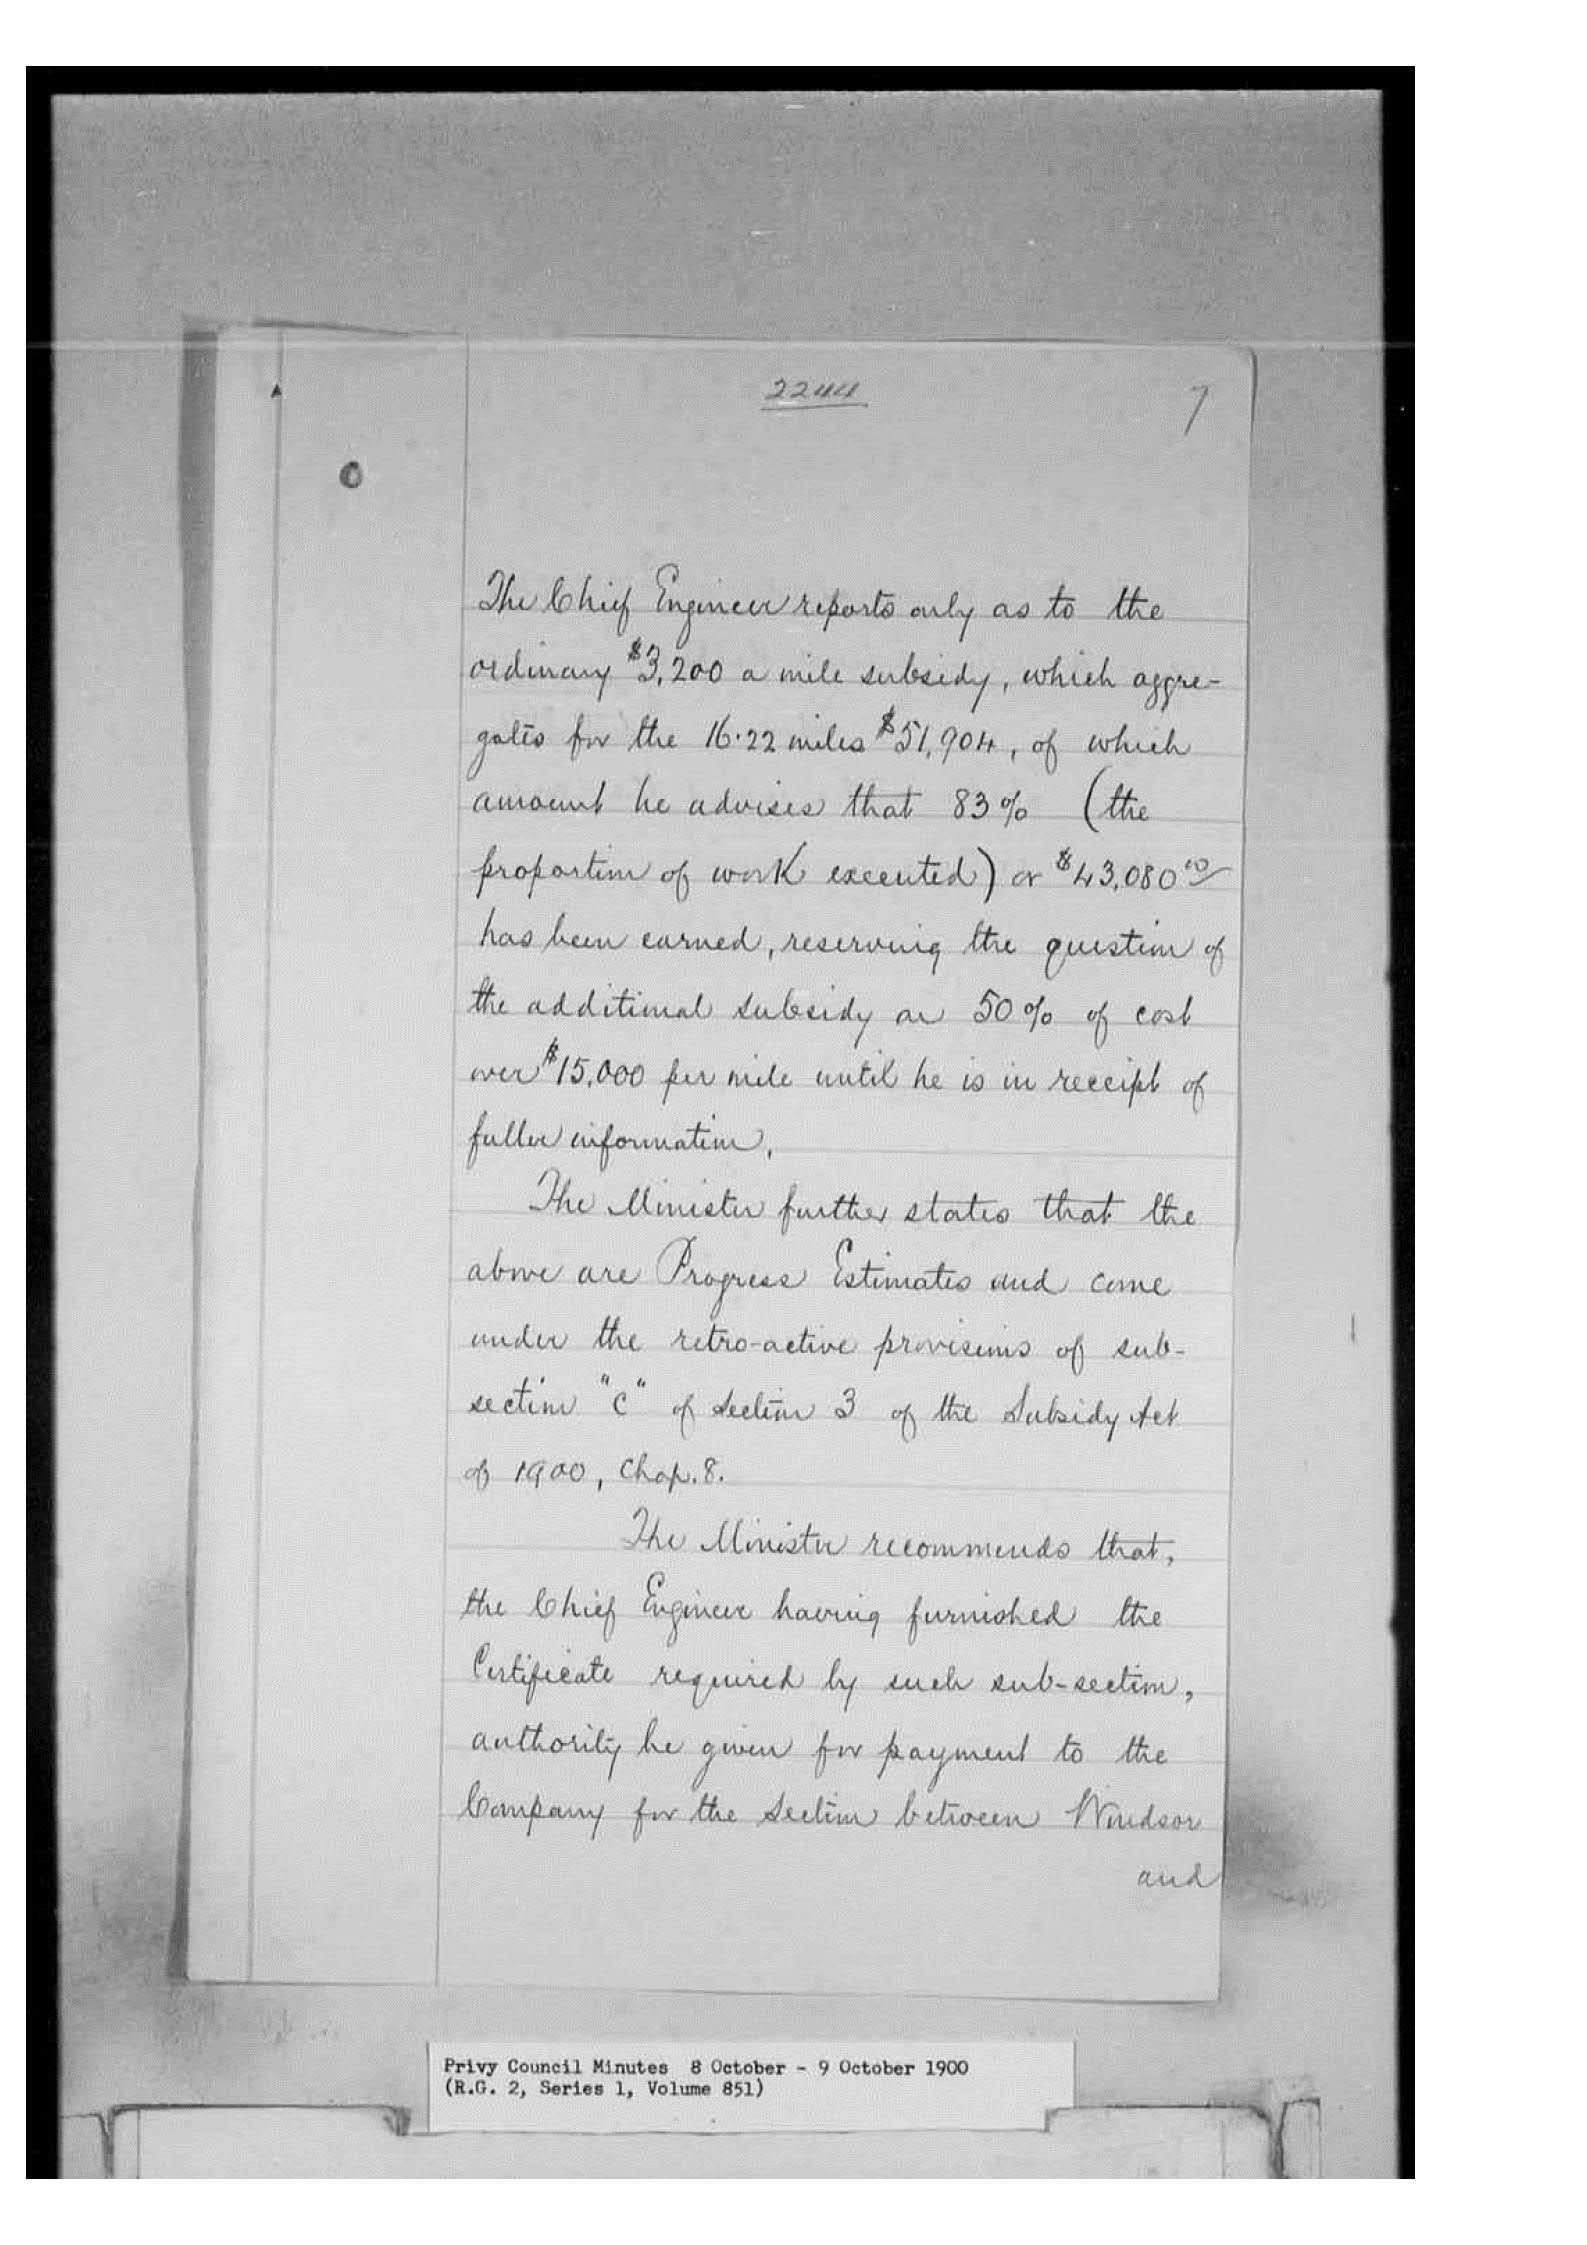 2244
7
The Chief Engineer reports only as to the
ordinary $3,200 a mile subsidy, which aggre-
gates for the 16.22 miles $51,904, of which
amount he advises that 83% (the
proportion of work executed) or $43,080 00
has been earned, reserving the question of
the additional subsidy on 50% of cost
over $15,000 per mile until he is in receipt of
fuller information.
The Minister further states that the
above are Progress Estimates and come
under the retro-active provisions of sub-
section "C" of Section 3 of the Subsidy Act
of 1900, Chap. 8.
The Minister recommends that,
the Chief Engineer having furnished the
Certificate required by such sub-section,
authority be given for payment to the
Company for the Section between Windsor
and
Privy Council Minutes 8 October - 9 October 1900
(R.G. 2, Series 1, Volume 851)